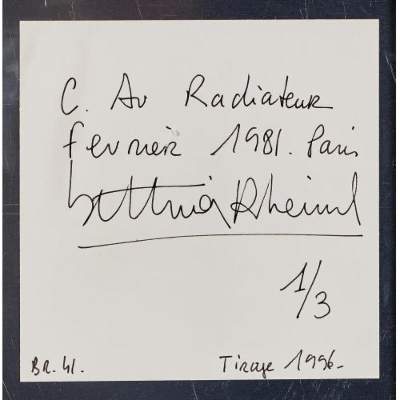 C. Au Radiateur
février 1981. Paris
Bettina Rheims
1/3
BR. 41.
Tirage 1996-